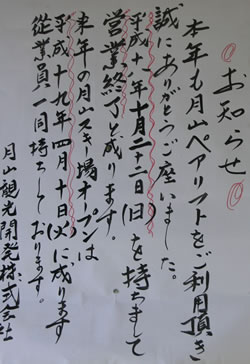 ◎お知らせ◎
本年も月山ペアリフトをご利用頂き
誠にありがとうご座いました。
平成十八年十月二十二日(日)を持ちまして
営業終了と成ります。
来年の月山スキー場オープンは
平成十九年四月十日(火)に成ります
従業員一同待ちしております。
月山観光開発株式会社